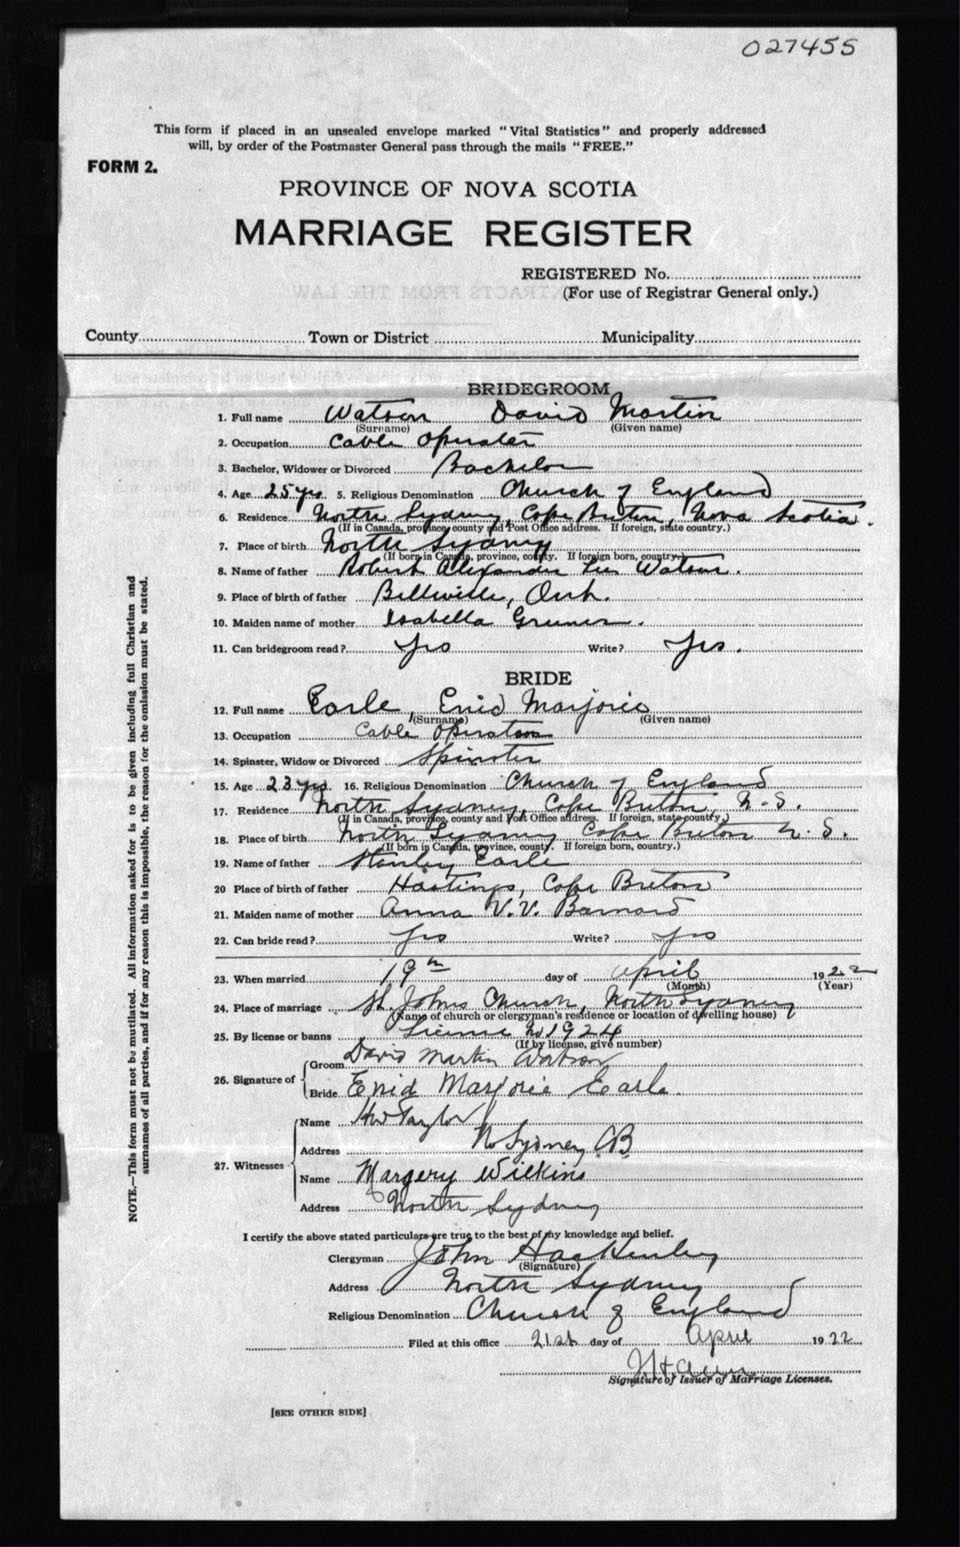 027455
This form if placed in an unsealed envelope marked "Vital Statistics" and properly addressed
will, by order of the Postmaster General pass through the mails "FREE."
FORM 2.
PROVINCE OF NOVA SCOTIA
MARRIAGE REGISTER
REGISTERED No.
(For use of Registrar General only.)
County Town or District Municipality
BRIDEGROOM
1. Full name Watson David Martin
(Surname) (Given name)
2. Occupation Cable Operator
3. Bachelor, Widower or Divorced Bachelor
4. Age 25 yrs 5. Religious Denomination Church of England
6. Residence North Sydney, Cape Breton, Nova Scotia.
(If in Canada, province, county and Post Office address. If foreign, state country.)
7. Place of birth North Sydney
(If born in Canada, province, county. If foreign born, country.)
8. Name of father Robert Alexander Watson.
9. Place of birth of father Belleville, Ont.
10. Maiden name of mother Isabella
11. Can bridegroom read? Yes Write? Yes.
BRIDE
12. Full name Earle, Enid Marjorie
(Surname) (Given name)
13. Occupation Cable Operator
14. Spinster, Widow or Divorced Spinster
15. Age 23 yrs. 16. Religious Denomination Church of England
17. Residence North Sydney, Cape Breton, N.S.
(If in Canada, province, county and Post Office address. If foreign, state country.)
18. Place of birth North Sydney Cape Breton N.S.
(If born in Canada, province, county. If foreign born, country.)
19. Name of father Stanley Earle
20 Place of birth of father Hastings, Cape Breton
21. Maiden name of mother Anna V.V. Barnard
22. Can bride read? Yes Write? Yes
23. When married 19th day of April 1922
(Month) (Year)
24. Place of marriage St. Johns Church, North Sydney
(Name of church or clergyman's residence or location of dwelling house)
25. By license or banns License No 1924
(If by license, give number)
26. Signature of Groom David Martin Watson
Bride Enid Marjorie Earle.
27. Witnesses
Name HW Taylor
Address N Sydney CB
Name Margery Wilkins
Address North Sydney
I certify the above stated particulars are true to the best of my knowledge and belief.
Clergyman John
(Signature)
Address North Sydney
Religious Denomination Church of England
Filed at this office 21st day of April 1922
Signature of Issuer of Marriage Licenses.
[SEE OTHER SIDE]
NOTE.—This form must not be mutilated. All information asked for is to be given including full Christian and
surnames of all parties, and if for any reason this is impossible, the reason for the omission must be stated.